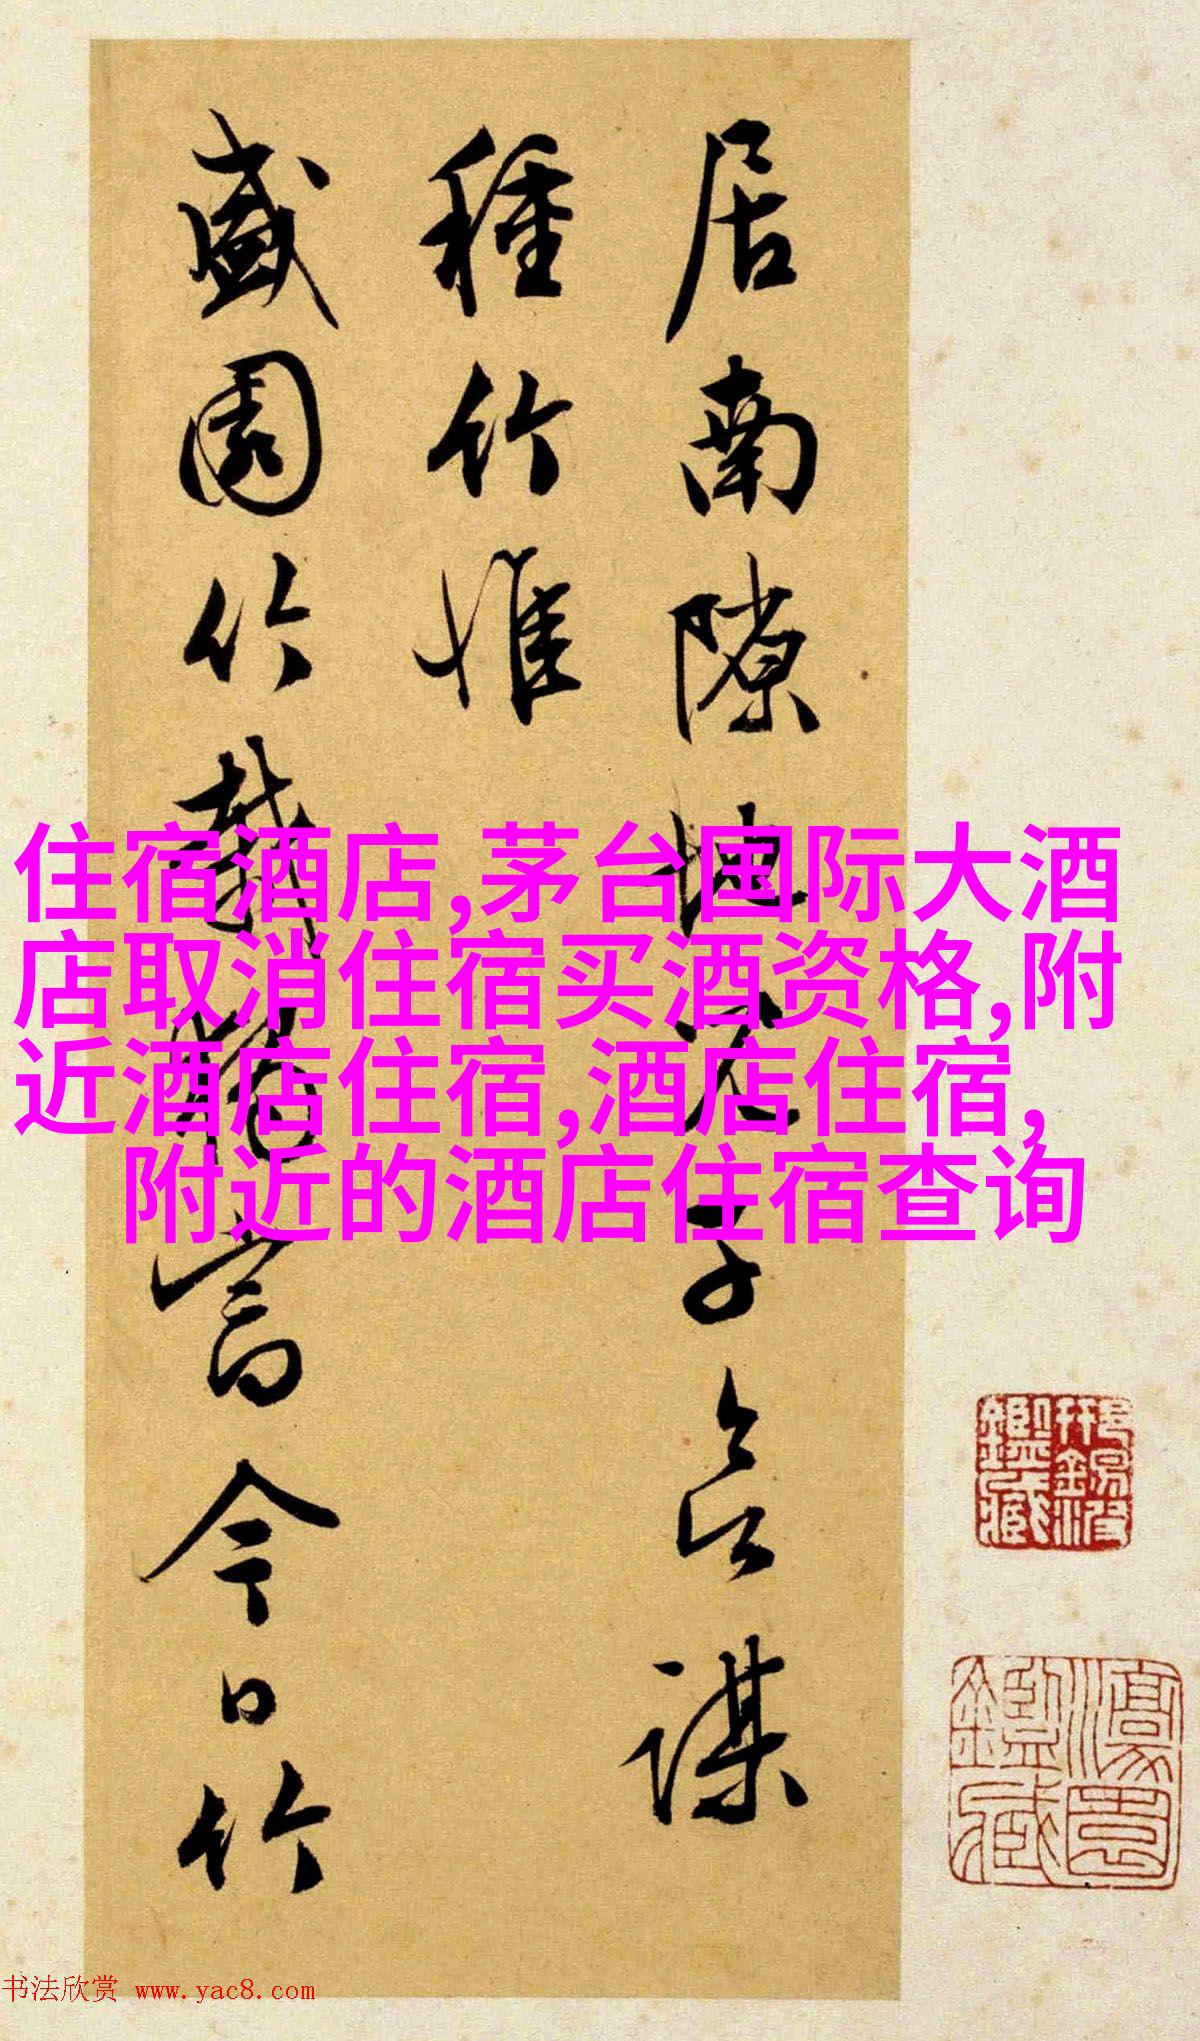 居南隙地子谋
種竹惟
盛園竹今日竹
住宿酒店,茅台国际大酒
店取消住宿买酒资格,附
近酒店住宿,酒店住宿,
附近的酒店住宿查询
鑑藏
鑑藏
书法欣赏 www.yac8.com